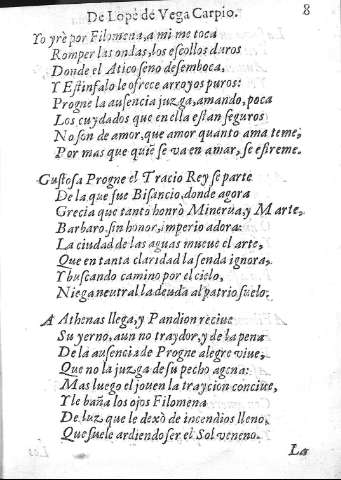 De Lope de Vega Carpio. 8
Yo yrè por Filomena, a mi me toca
Romper las ondas, los escollos duros
Donde el Atico seno desemboca,
Y Estinfalo le ofrece arroyos puros:
Progne la ausencia juzga, amando, poca
Los cuydados que en ella estan seguros
No son de amor, que amor quanto ama teme,
Por mas que quiẽ se va en amar, se estreme.
Gustosa Progne el Tracio Rey se parte
De la que fue Bisancio, donde agora
Grecia que tanto honrò Minerua, y Marte,
Barbaro, sin honor, imperio adora:
La ciudad de las aguas mueue el arte,
Que en tanta claridad la senda ignora,
Y buscando camino por el cielo,
Niega neutral la deuda al patrio suelo.
A Athenas llega, y Pandion reciue
Su yerno, aun no traydor, y de la pena
De la ausencia de Progne alegre viue,
Que no la juzga de su pecho agena:
Mas luego el jouen la traycion conciue,
Y le baña los ojos Filomena
De luz, que le dexò de incendios lleno,
Que suele ardiendo ser el Sol veneno.
La